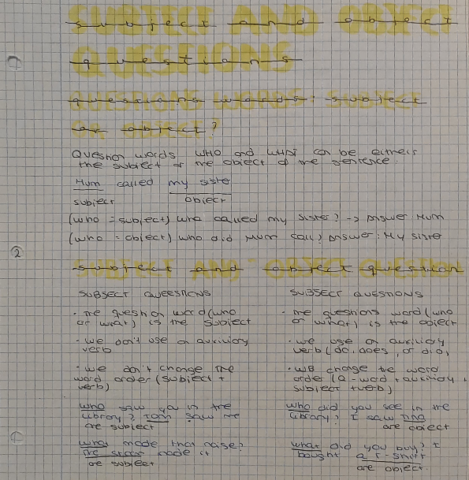 SUBJECT AND OBJECT
subject and object
QUESTIONS
questions
QUESTIONS WORDS: SUBJECT
questions words: subject
OR OBJECT?
or object?
Question words WHO and WHAT can be either
the subject or the object of the sentence
Mum called my sister
subject object
(who = subject) who called my sister? -> answer Mum
(who = object) who did Mum call? answer: My sister
②
SUBJECT AND OBJECT QUESTION
subject and object question
SUBJECT QUESTIONS
• the question word (who
or what) is the subject
• we don't use an auxiliary
verb
• we don't change the
word order (subject +
verb)
who saw you in the
library? Tom saw me
are subject
what made that noise?
The made it
are subject
SUBJECT QUESTIONS
• the questions word (who
or what) is the object
• we use an auxiliary
verb (do, does, or did,
• we change the word
order (Q-word + auxiliary +
subject + verb)
who did you see in the
library? I saw him
are object
what did you buy? I
bought a t-shirt
are object